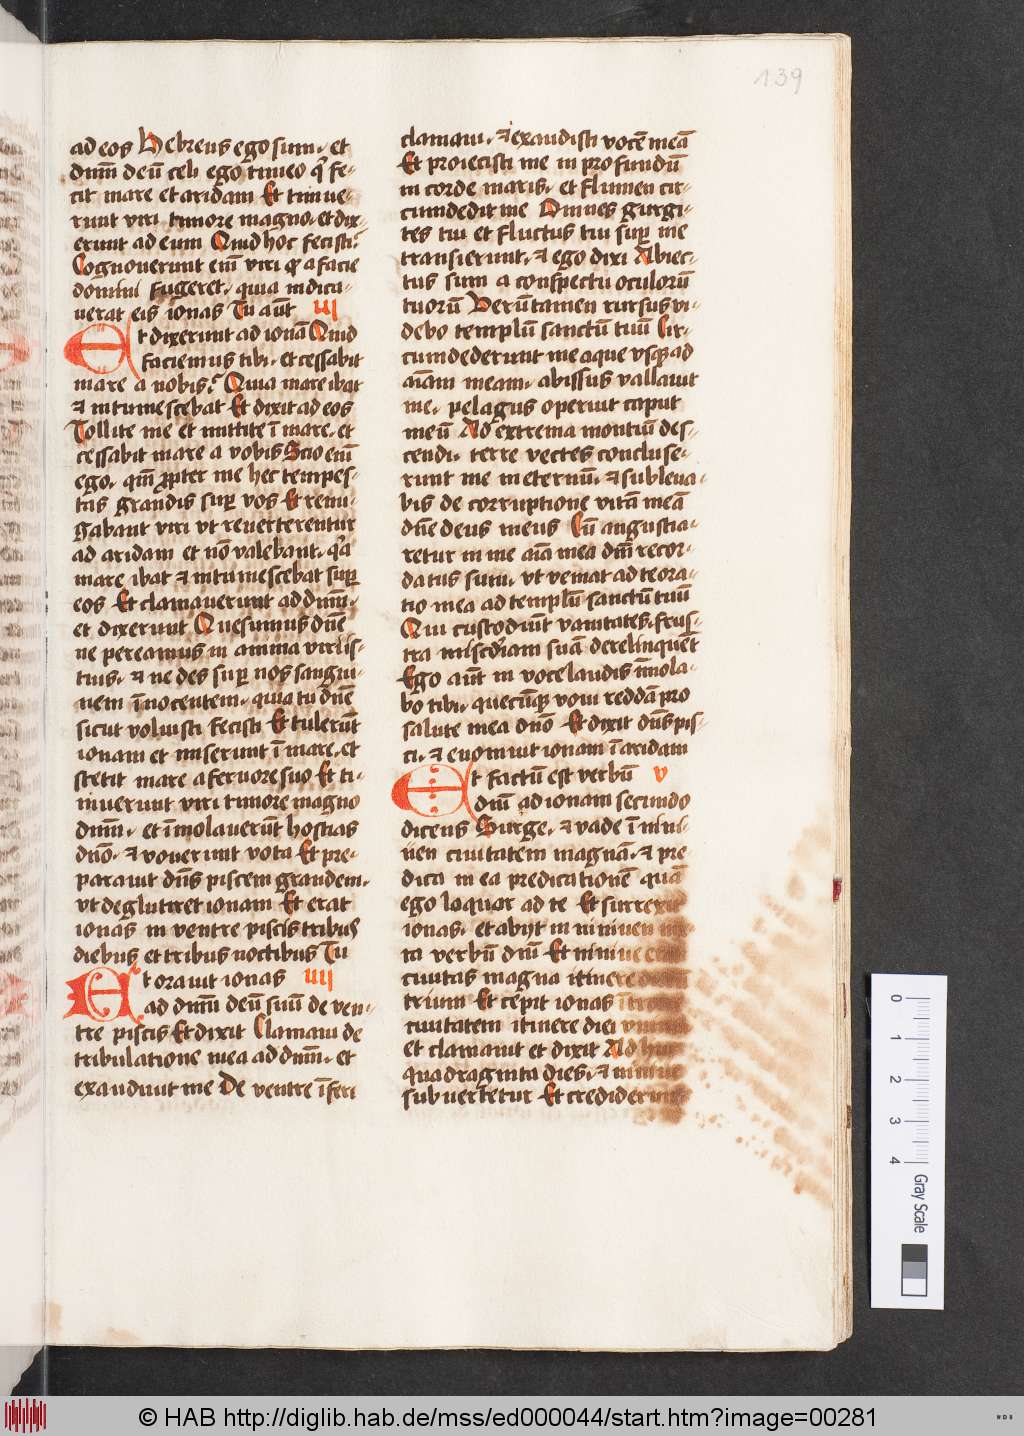 139
ad eos Hebreus ego sum. et
dnm̄ deū celi ego timeo qͥ fe-
cit mare et aridam Et timue-
runt viri timore magno. et dix-
erunt ad eum Quid hoc fecisti?
Cognouerunt em̄ viri qͥ a facie
domini fugeret. quia indica-
uerat eis ionas Tu aūt iii
Et dixerunt ad ionā Quid
faciemus tibi. et cessabit
mare a nobis? Quia mare ibat
⁊ intumescebat Et dixit ad eos
Tollite me et mittite ī mare. et
cessabit mare a vobis Scio em̄
ego. qm̄ ꝓpter me hec tempes-
tas grandis sup̄ vos Et remi-
gabant viri vt reuerterentur
ad aridam et nō valebant. qͥa
mare ibat ⁊ intumescebat sup̄
eos Et clamauerunt ad dnm̄.
et dixerunt Quesumus dn̄e
ne pereamus in anima viri is-
tius. ⁊ ne des sup̄ nos sangui-
nem īnocentem. quia tu dn̄e
sicut voluisti fecisti Et tulerūt
ionam et miserunt ī mare. et
stetit mare a feruore suo Et ti-
muerunt viri timore magno
dnm̄. et īmolauerūt hostias
dnō. ⁊ vouerunt vota Et pre-
parauit dn̄s piscem grandem.
vt deglutiret ionam Et erat
ionas in ventre piscis tribus
diebus et tribus noctibus Tu
Et orauit ionas iiii
ad dnm̄ deū suū de ven-
tre piscis Et dixit Clamaui de
tribulatione mea ad dnm̄. et
exaudiuit me De ventre īferi
clamaui. ⁊ exaudisti vocē meā
Et proiecisti me in profundū
in corde maris. et flumen cir-
cumdedit me Omnes gurgi-
tes tui et fluctus tui sup̄ me
transierunt. ⁊ ego dixi Abiec-
tus sum a conspectu oculorū
tuorū Verūtamen rursus vi-
debo templū sanctū tuū Cir-
cumdederunt me aque vsqꝫ ad
aīam meam. abissus vallauit
me. pelagus operuit caput
meū Ad extrema montiū des-
cendi. terre vectes concluse-
runt me in eternū. ⁊ subleua-
bis de corruptione vitā meā
dn̄e deus meus Cū angustia-
retur in me aīa mea dnm̄ recor-
datus sum. vt veniat ad te ora-
tio mea ad templū sanctū tuū
Qui custodiūt vanitates. frus-
tra miscdīam suā derelinquēt
Ego aūt in voce laudis īmola-
bo tibi. quecūqꝫ voui reddā pro
salute mea dnō Et dixit dn̄s pis-
ci. ⁊ euomuit ionam ī aridam
Et factū est verbū v
dnī ad ionam secundo
dicens Surge. ⁊ vade ī nini-
uen ciuitatem magnā. ⁊ pre
dica in ea predicationē quā
ego loquor ad te Et surrexit
ionas. et abijt in niniuen
ta verbū dnī Et niniue
ciuitas magna itinere
trium Et cepit ionas
ciuitatem itinere diei vnius
et clamauit et dixit Ad huc
quadraginta dies. ⁊ niniue
subuertetur Et crediderunt
0 1 2 3 4 Gray Scale
© HAB http://diglib.hab.de/mss/ed000044/start.htm?image=00281